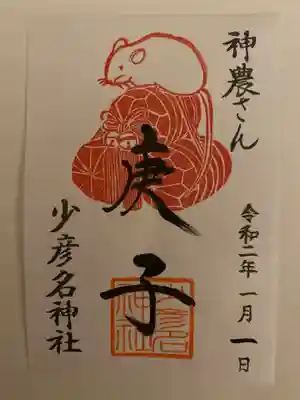 神農さん
令和二年一月一日
庚子
少彦名神社